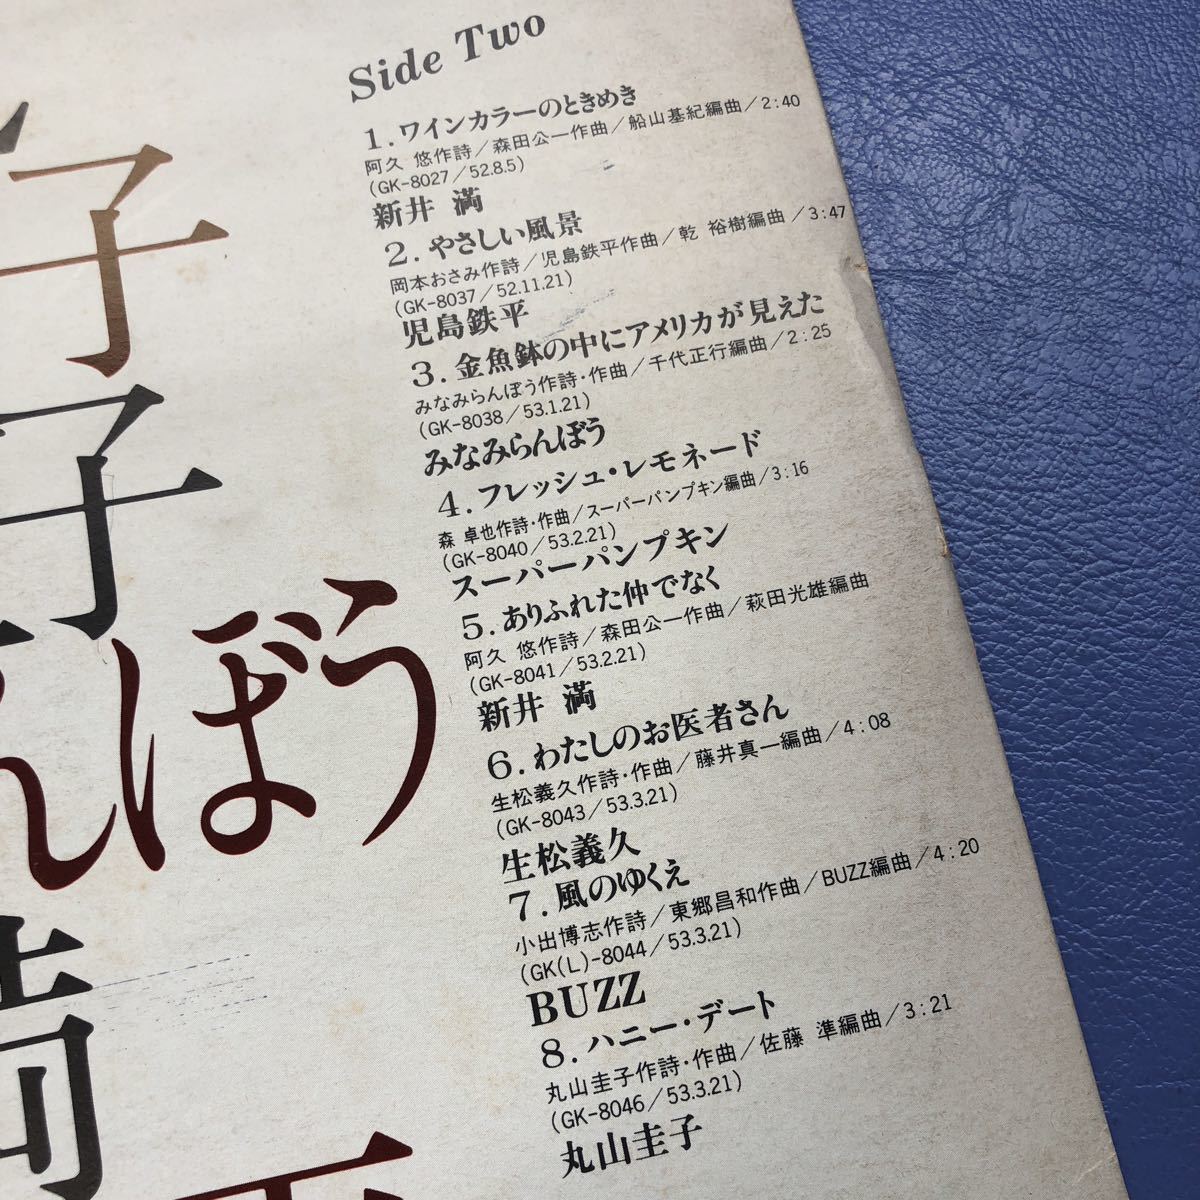 Side Two
1. ワインカラーのときめき
阿久 悠作詩／森田公一作曲／船山基紀編曲／2:40
(GK-8027／52.8.5)
新井 満
2. やさしい風景
岡本おさみ作詩／児島鉄平作曲／乾 裕樹編曲／3:47
(GK-8037／52.11.21)
児島鉄平
3. 金魚鉢の中にアメリカが見えた
みなみらんぼう作詩・作曲／千代正行編曲／2:25
(GK-8038／53.1.21)
みなみらんぼう
4. フレッシュ・レモネード
森 卓也作詩・作曲／スーパーパンプキン編曲／3:16
(GK-8040／53.2.21)
スーパーパンプキン
5. ありふれた仲でなく
阿久 悠作詩／森田公一作曲／萩田光雄編曲
(GK-8041／53.2.21)
新井 満
6. わたしのお医者さん
生松義久作詩・作曲／藤井真一編曲／4:08
(GK-8043／53.3.21)
生松義久
7. 風のゆくえ
小出博志作詩／東郷昌和作曲／BUZZ編曲／4:20
(GK(L)-8044／53.3.21)
BUZZ
8. ハニー・デート
丸山圭子作詩・作曲／佐藤 準編曲／3:21
(GK-8046／53.3.21)
丸山圭子
子
子
んぼう